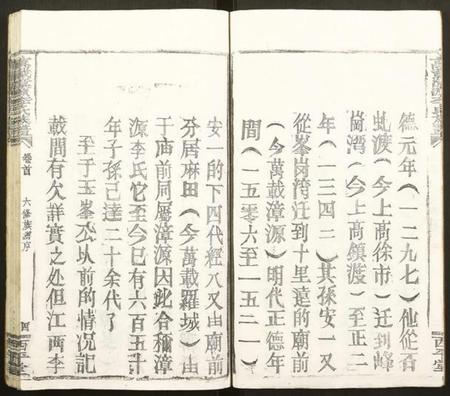 德元年（一二九七）他從呑
虬渡（今上高徐市）迁到峰
崗湾（今上高鎮渡）至正二
年（一三四二）其孫安一又
從峯崗湾迁到十里遠的廟前
（今萬載漳源）明代正德年
間（一五零六至一五二一）
安一的下四代經八又由廟前
分居麻田（今萬載羅城）由
于庙前同屬漳源因此合稱漳
源李氏它至今已有六百五十
年子孫已達二十余代了
至于玉峯公以前的情况記
載間有欠詳實之处但江西李
卷首
六修族譜序
四
西平堂